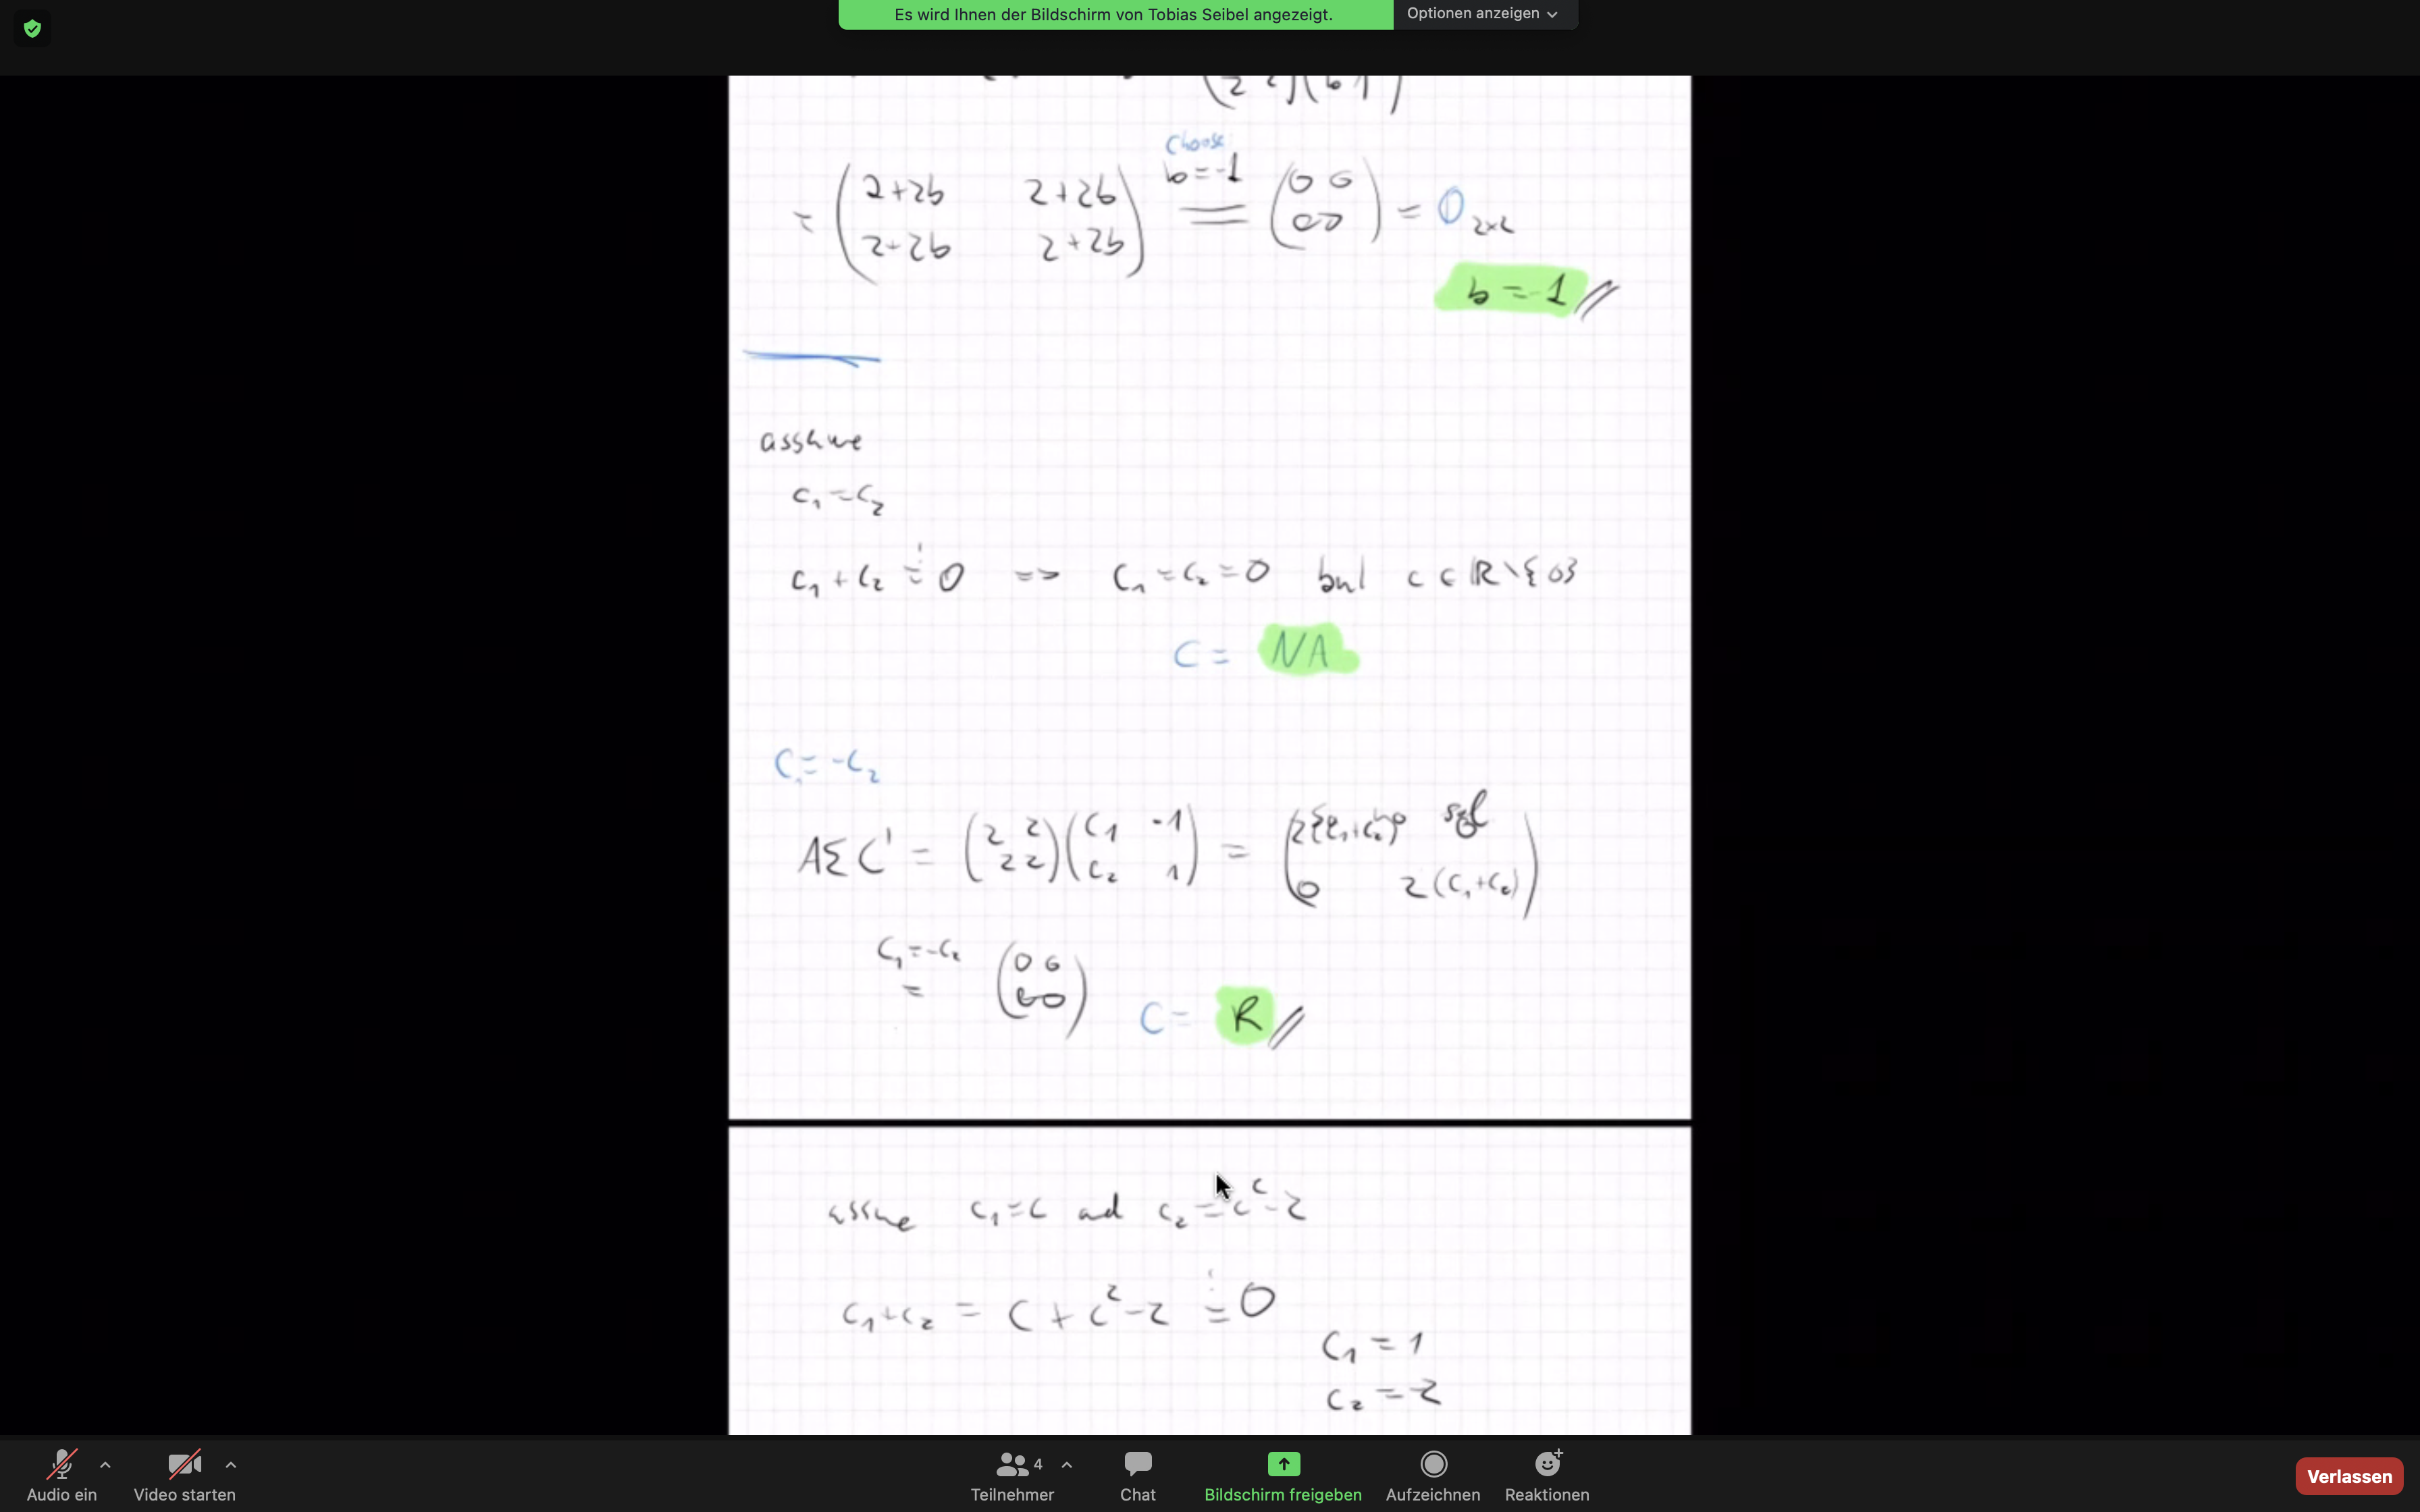 Es wird Ihnen der Bildschirm von Tobias Seibel angezeigt. Optionen anzeigen
Choose
= (2+2b 2+2b b=-1 (0 0 = 0 2x2
2+2b 2+2b) = 0 0)
b = -1 //
assume
c₁ = c₂
c₁ + c₂ = 0 => c₁ = c₂ = 0 but c ∈ ℝ\{0}
C = NA
C₁ = -c₂
AΣC' = (2 2 (c₁ -1 =
2 2) c₂ 1) 0 2(c₁+c₂))
c₁ = -c₂ (0 0
= 0 0) C = R //
assume c₁ = c and c₂ = c² - 2
c₁+c₂ = c + c² - 2 = 0
c₁ = 1
c₂ = -2
Audio ein Video starten 4 Teilnehmer Chat Bildschirm freigeben Aufzeichnen Reaktionen Verlassen